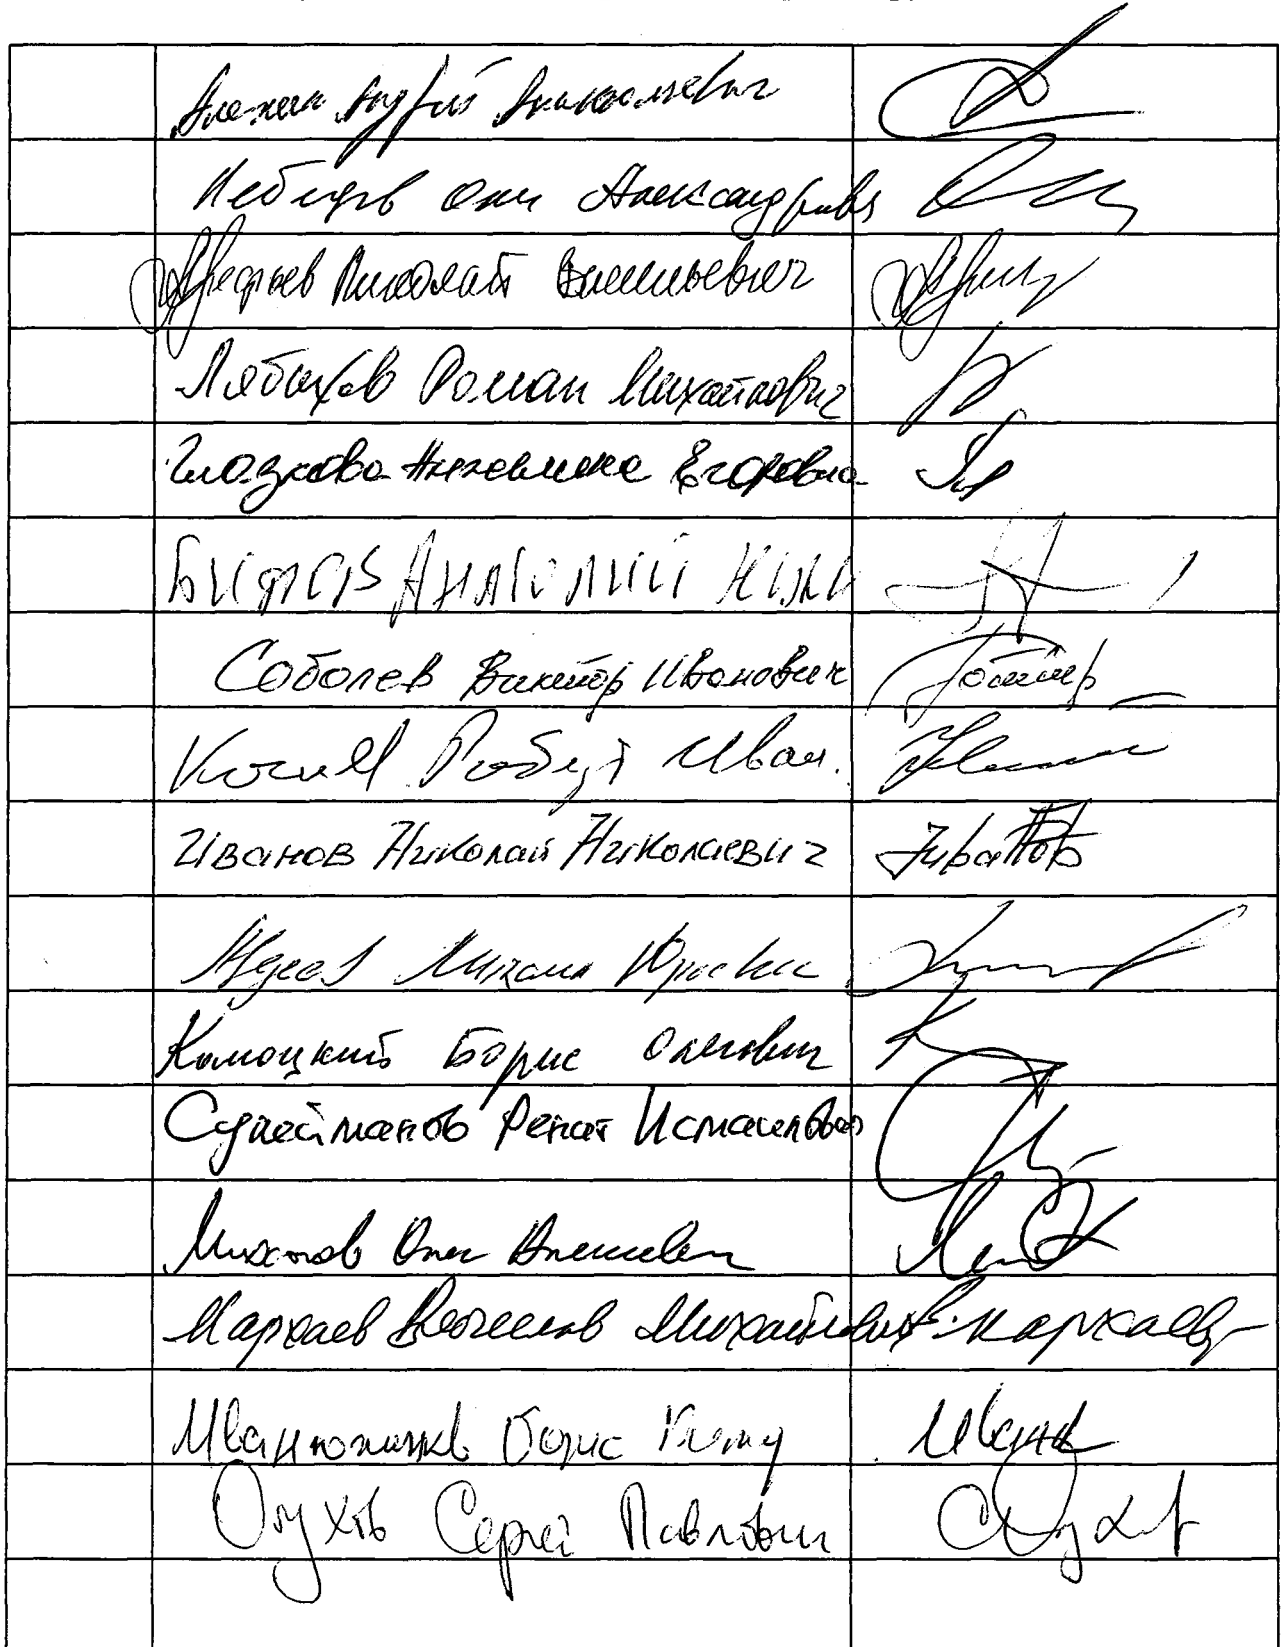 Алехин Андрей Анатольевич
Лебедев Олег Александрович
Арефьев Николай Васильевич
Лябихов Роман Михайлович
Глазкова Анжелика Егоровна
Бифов Анатолий Жам
Соболев Виктор Иванович Соболев
Кочиев Роберт Иван.
Иванов Николай Николаевич Иванов
Авдеев Михаил Юрьевич
Комоцкий Борис Олегович
Сулейманов Ренат Исмаилович
Михайлов Олег Алексеевич
Мархаев Вячеслав Михайлович Мархаев
Иванюженков Борис Иван
Обухов Сергей Павлович Обухов